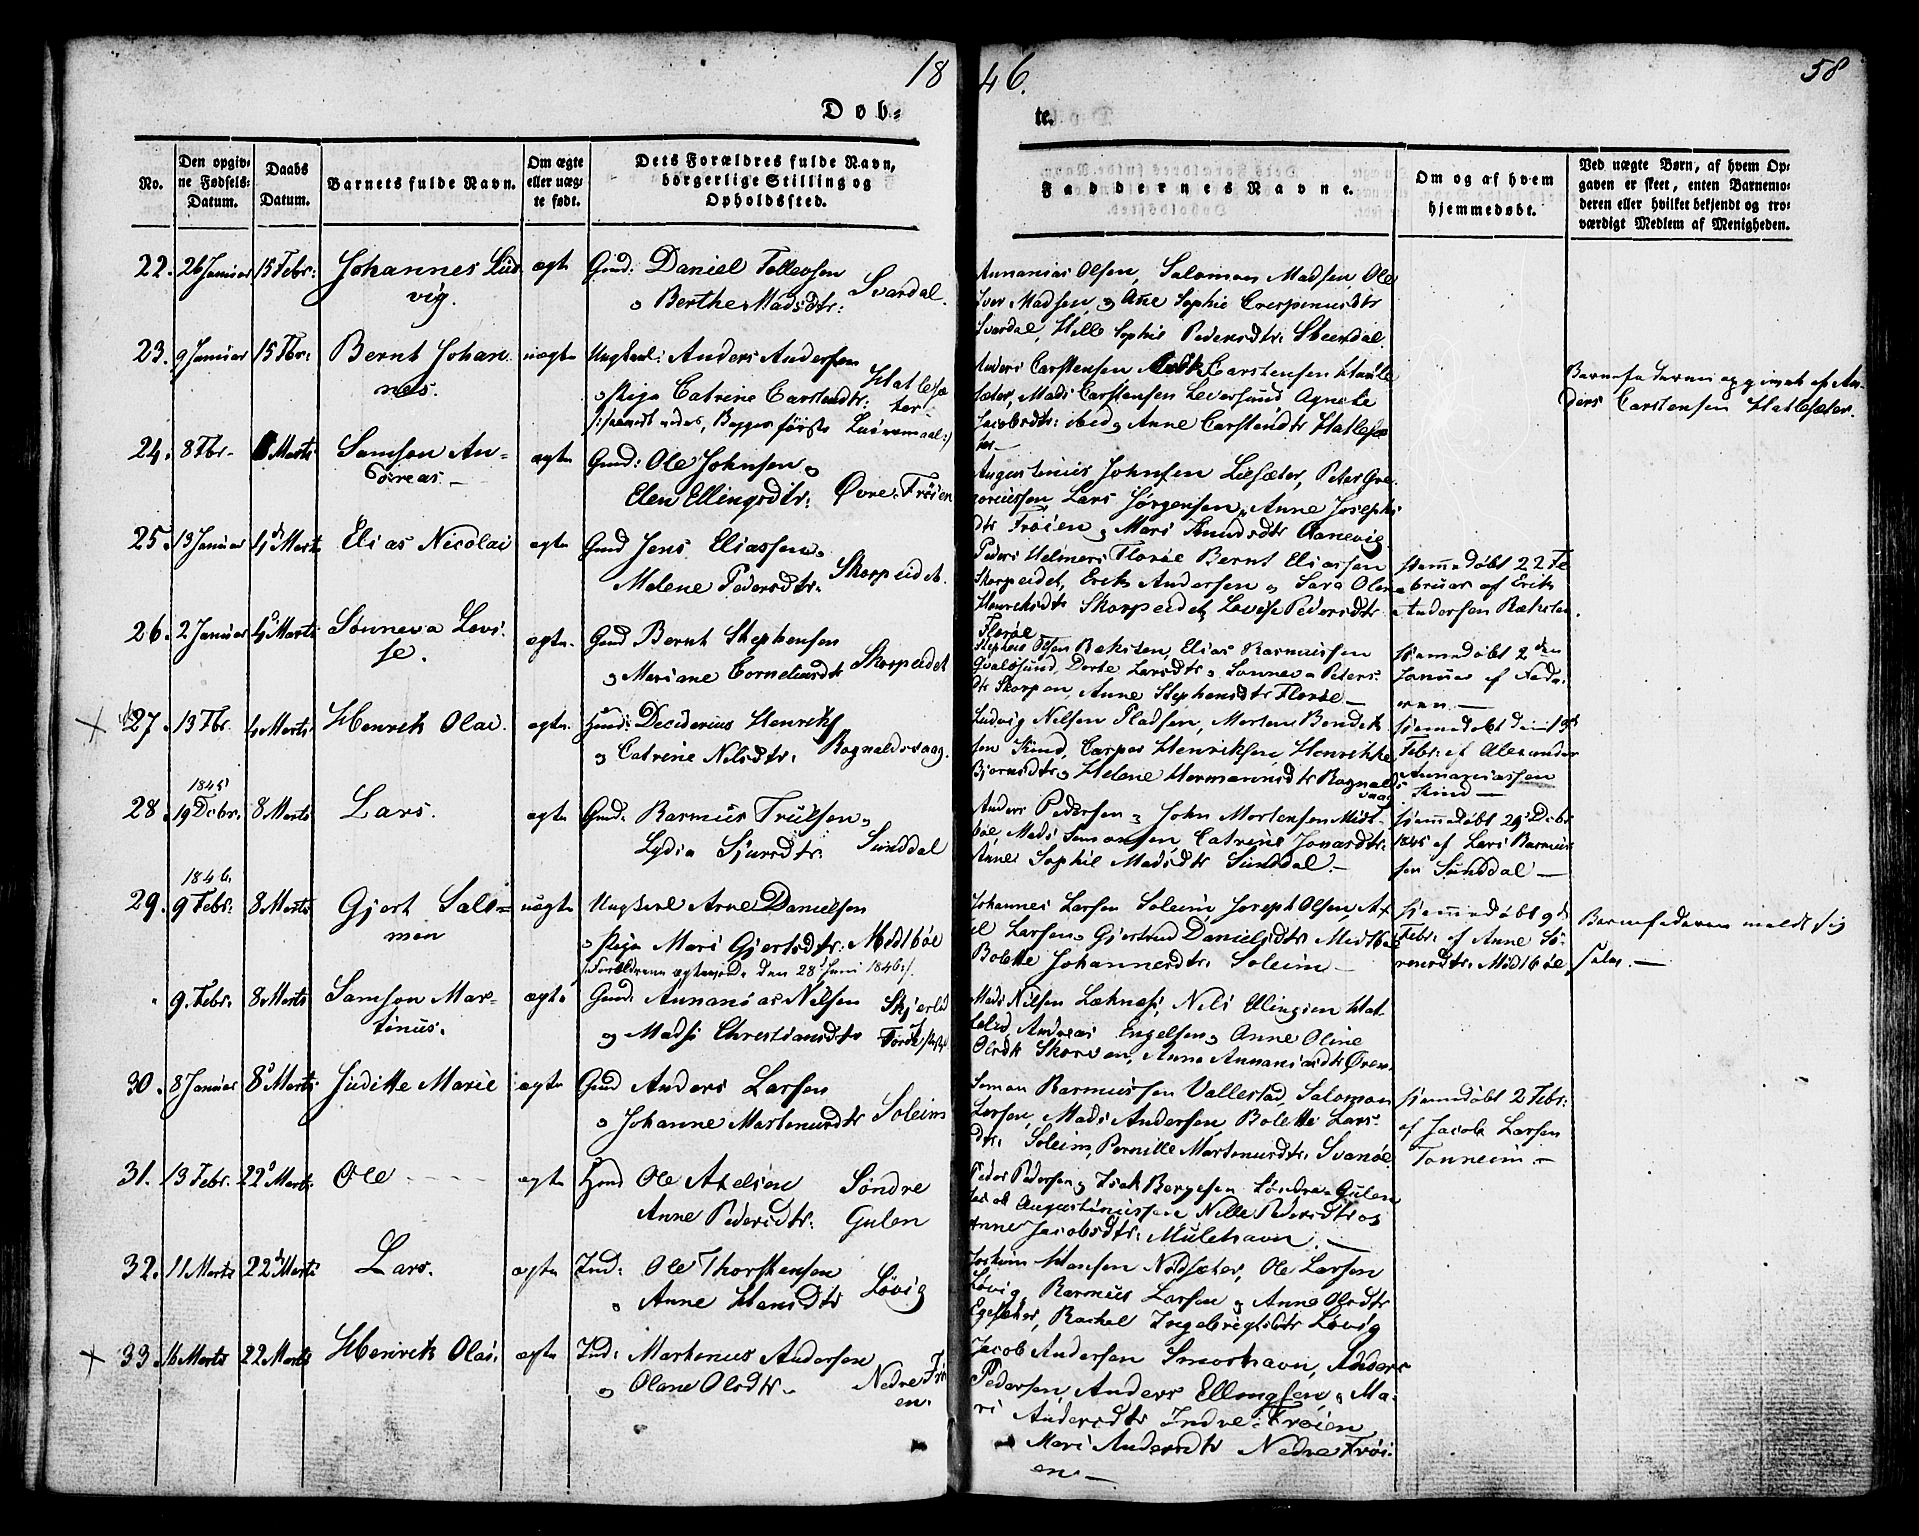 18
46.
58
Døb-
te.
No.
Den opgiv-
ne Fødsels-
Datum.
Daabs
Datum.
Barnets fulde Navn.
Om ægte
eller uæg-
te født.
Dets Forældres fulde Navn,
borgerlige Stilling og
Opholdssted.
Faddernes Navne.
Om og af hvem
hjemmedøbt.
Ved uægte Børn, af hvem Op-
gaven er skeet, enten Barnemo-
deren eller hvilket bekjendt og tro-
værdigt Medlem af Menigheden.
22. 26 Januar 15 Febr: Johannes Lud
vig.
ægte Gmd: Daniel Tollevsen
o Berthe Madsdtr: Svardal.
Annanias Olsen, Salomon Madsen, Ole
Iver Madsen, og Ane Sophie Crespinusdtr
Svardal, Hille Sophie Pedersdtr: Steendal.
23. 9 Januar 15 Fbr: Bernt Johan
nes.
uægte Ungkarl: Anders Andersen
o Pige Catrine Carstendtr: Hatlesæ
ter.
begges første Leiermaal:/
Anders Carstensen Carstensen Hatle
sæter, Mads Carstensen Leversund Agnete
Jacobsdtr: ibid og Anne Carstendtr Hatlesæ
ter—
Barnefaderen opgivet af An
ders Carstensen Hatlesæter.
24. 8 Fbr. Marts Samson An-
dreas—
ægte Gmd: Ole Johnsen og
Elen Ellingsdtr: Øvre-Frøien
Augustinus Johnsen Liesæter, Peter Gre
goriussen Lars Jørgensen, Anne Josephs
dtr Frøien og Mari Knudsdtr Aanevig
25. 13 Januar 4 Marts Elias Nicolai
ægte Gmd Jens Eliassen og
Malene Pedersdtr: Skorpeidet.
Peder Helmers Florøe Bernt Eliassen
Skorpeidet, Erik Andersen og Sara Olina
Henriksdtr Skorpeidet, Lovise Pedersdtr
Florøe
hjemmedøbt 22 Fe
bruar af Erik
Andersen Ræksten.
26. 2 Januar 4 Marts Sønneva Lovi
se.
ægte. Gmd Bernt Stephensen
og Mariane Corneliusdtr Skorpeidet
Stephen Olsen Ræksten, Elias Rasmussen
Qvaløsund, Dorte Larsdtr og Sønneva Peters
dtr Skorpen, Anne Stephensdtr Florøe—
hjemmedøbt 2den
Januar af Fade
ren—
27. 13 Fbr. 4 Marts. Henrik Olai.
ægte. Huusd: Deciderius Henriks
og Catrine Nilsdtr: Rognaldsvaag.
Ludvig Nilsen Pladsen, Morten Bendik
sen Kind, Casper Henriksen, Henrikke
Bjørnsdtr og Helene Hermannusdtr Rognalds
vaag
hjemmedøbt den 19d
Febr: af Alexander
Annaniassen
Kind—
1845
28. 19 Decbr: 8 Marts Lars.
ægte Gmd. Rasmus Truelsen og
Lydia Sjursdtr: Sunddal
Anders Pedersen og John Mortensen Midt-
bøe, Mads Simonsen, Catrine Jonasdtr:
Anne Sophie Madsdtr Sunddal.—
hjemmedøbt 29 Decbr
1845 af Lars Rasmus
sen Sunddal—
1846.
29. 9 Febr: 8 Marts Gjert Salo-
mon
uægte Ungkarl Arne Danielsen
o Pige Mari Gjertsdtr: Midtbøe
/:Forældrene ægteviede den 28d Juni 1846:/
Johannes Larsen Soleim, Joseph Olsen Ax
el Larsen og Gjertrud Danielsdtr Midtbøe
Bolette Johannesdtr: Soleim—
hjemmedøbt 9d
Febr: af Anne Sø
rensdtr: Midtbøe
Barnefaderen meldt sig
selv.—
9. Febr: 8 Marts Samson Mar-
tinus.
ægte Gmd: Annanias Nilsen Skjerlid
og Madsi Christiansdtr Førde
Mads Nilsen Læknæs, Nils Ellingsen Hat
lelid, Andreas Engelsen og Anne Oline
Olsdtr Skorven, Anna Annaniasdtr Øren
30. 8 Januar 8 Marts Juditte Marie
ægte Gmd Anders Larsen
o Johanne Martinusdtr Soleim
Simon Rasmussen Vallestad, Salomon
Larsen, Mads Andersen, Bolette Lars-
dtr: Soleim, Pernille Martinusdtr: Svanøe
hjemmedøbt 2 Febr:
af Jacob Larsen
Tonneim—
31. 13 Febr. 22 Marts. Ole
ægte Hmd Ole Axelsen Søndre
Anne Pedersdtr: Gulen
Peder Pedersen og Isak Børgesen Søndre-Gulen
Jacob Augustinussen Nille Pedersdtr og
Anne Jacobsdtr: Mulehavn.—
32. 11 Marts 22d Marts Lars.
ægte Ind: Ole Thorstensen
o Anne Hansdtr Løvig
Joakim Hansen Nødsæter, Ole Larsen
Løvig, Rasmus Larsen og Anne Olsdtr
Egesæter, Rachel Ingebrigtsdtr Løvig
33. 16 Marts 22 Marts Henrik Olai.
ægte Ind: Martinus Andersen
og Olane Olsdtr. Nedre Frøi
en.
Jacob Andersen Smørhavn, Anders
Pedersen, Anders Ellingsen, og Ma-
ri Andersdtr Indre-Frøien
Mari Andersdtr Nedre Frøi-
en.—